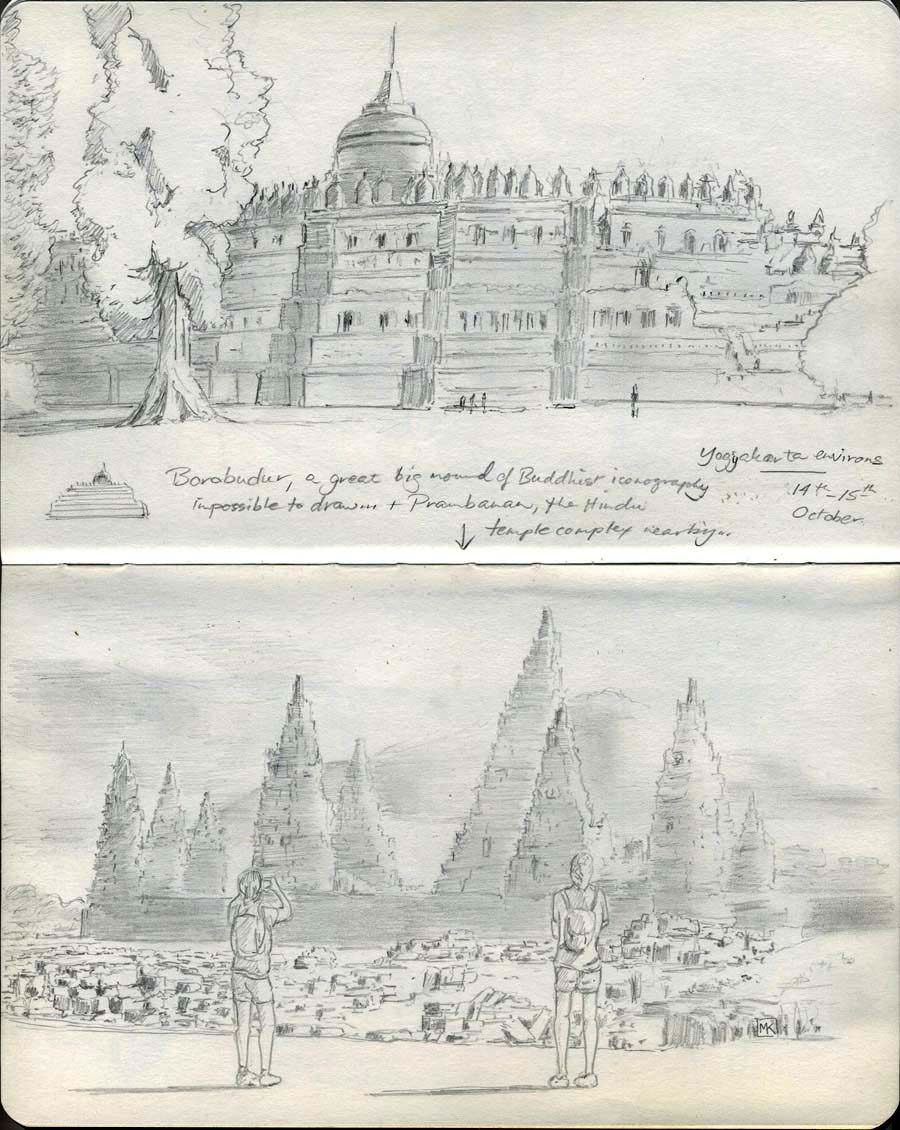 Borobudur, a great big mound of Buddhist iconography
impossible to draw... + Prambanan, the Hindu
temple complex nearby...
Yogyakarta environs
14th - 15th
October
MK